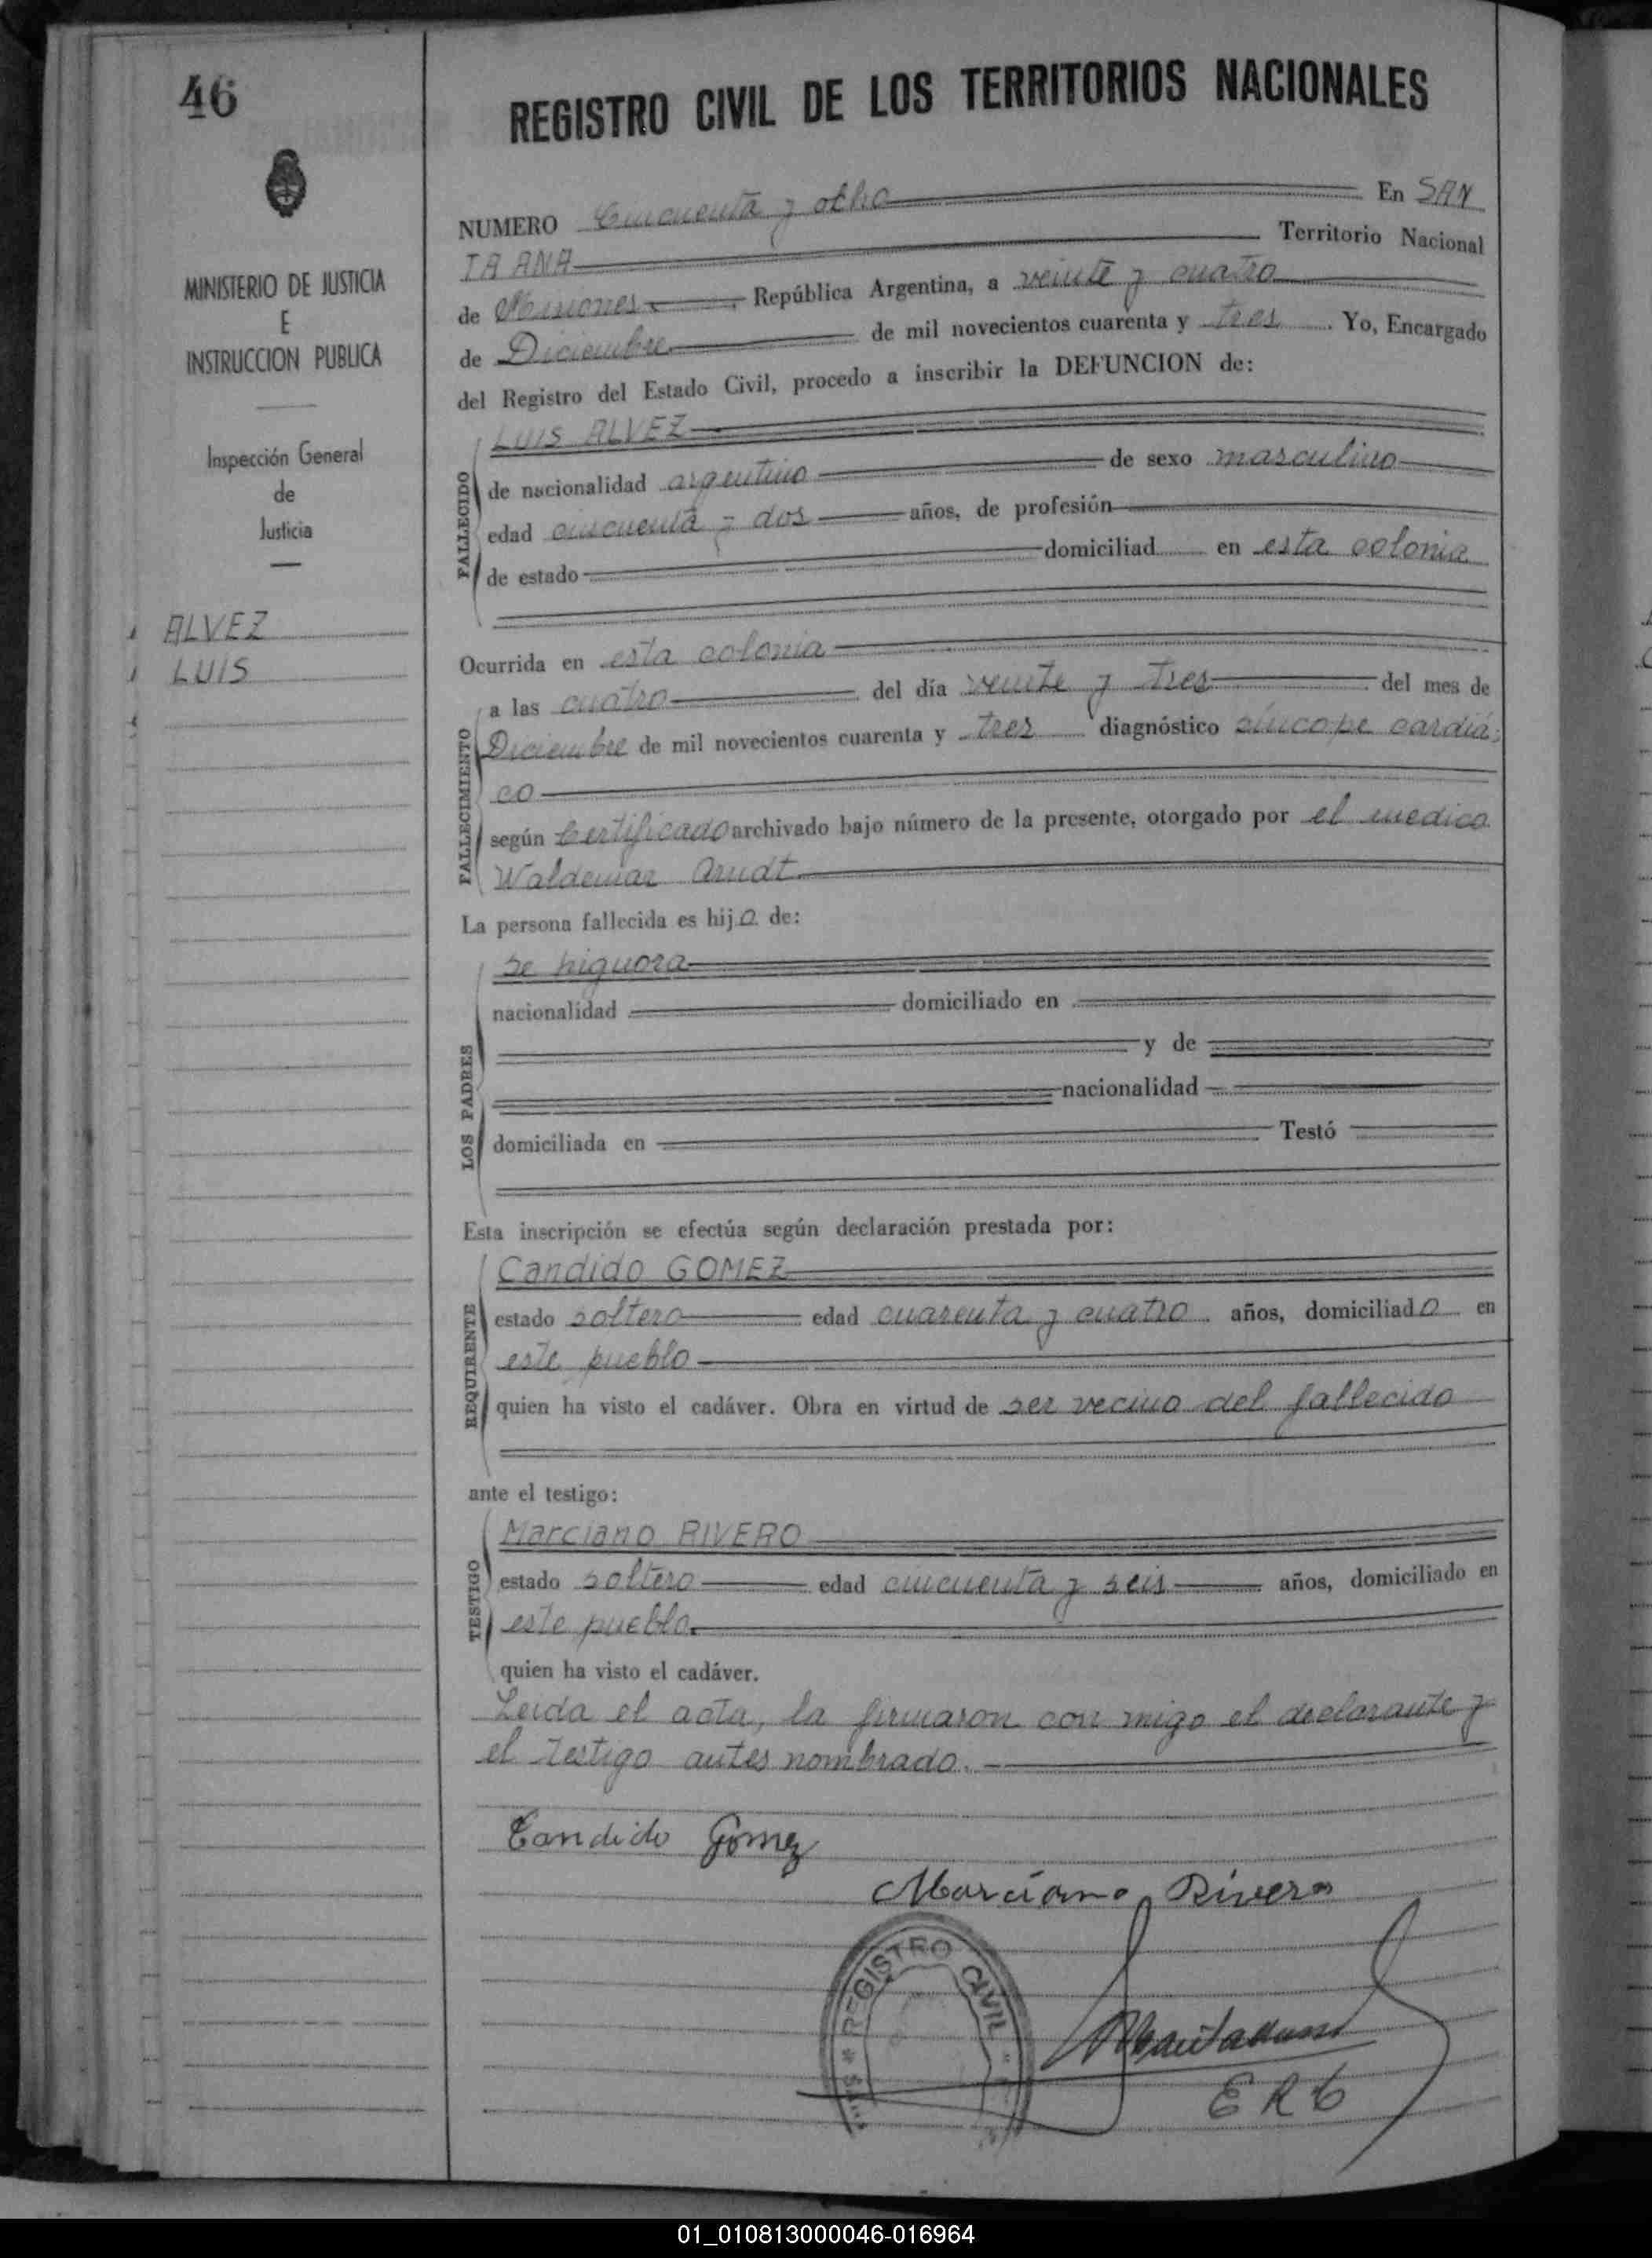 46
REGISTRO CIVIL DE LOS TERRITORIOS NACIONALES
MINISTERIO DE JUSTICIA
E
INSTRUCCION PUBLICA
Inspección General
de
Justicia
ALVEZ
LUIS
NUMERO Cincuenta y ocho En SAN
TA ANA Territorio Nacional
de Misiones, República Argentina, a veinte y cuatro
de Diciembre de mil novecientos cuarenta y tres. Yo, Encargado
del Registro del Estado Civil, procedo a inscribir la DEFUNCION de:
LUIS ALVEZ
FALLECIDO
de nacionalidad argentino de sexo masculino
edad cincuenta y dos años, de profesión
de estado domiciliad en esta colonia
Ocurrida en esta colonia
FALLECIMIENTO
a las cuatro del día veinte y tres del mes de
Diciembre de mil novecientos cuarenta y tres diagnóstico síncope cardia
co
según Certificado archivado bajo número de la presente, otorgado por el medico
Waldemar Arndt
La persona fallecida es hijo de:
LOS PADRES
se hignora
nacionalidad domiciliado en
y de
nacionalidad
domiciliada en Testó
Esta inscripción se efectúa según declaración prestada por:
REQUIRENTE
Candido GOMEZ
estado soltero edad cuarenta y cuatro años, domiciliado en
este pueblo
quien ha visto el cadáver. Obra en virtud de ser vecino del fallecido
ante el testigo:
TESTIGO
Marciano RIVERO
estado soltero edad cincuenta y seis años, domiciliado en
este pueblo.
quien ha visto el cadáver.
Leida el acta, la firmaron con migo el declarante y
el testigo antes nombrado.
Candido Gomez
Marciano Rivero
REGISTRO CIVIL
E R C
01_010813000046-016964